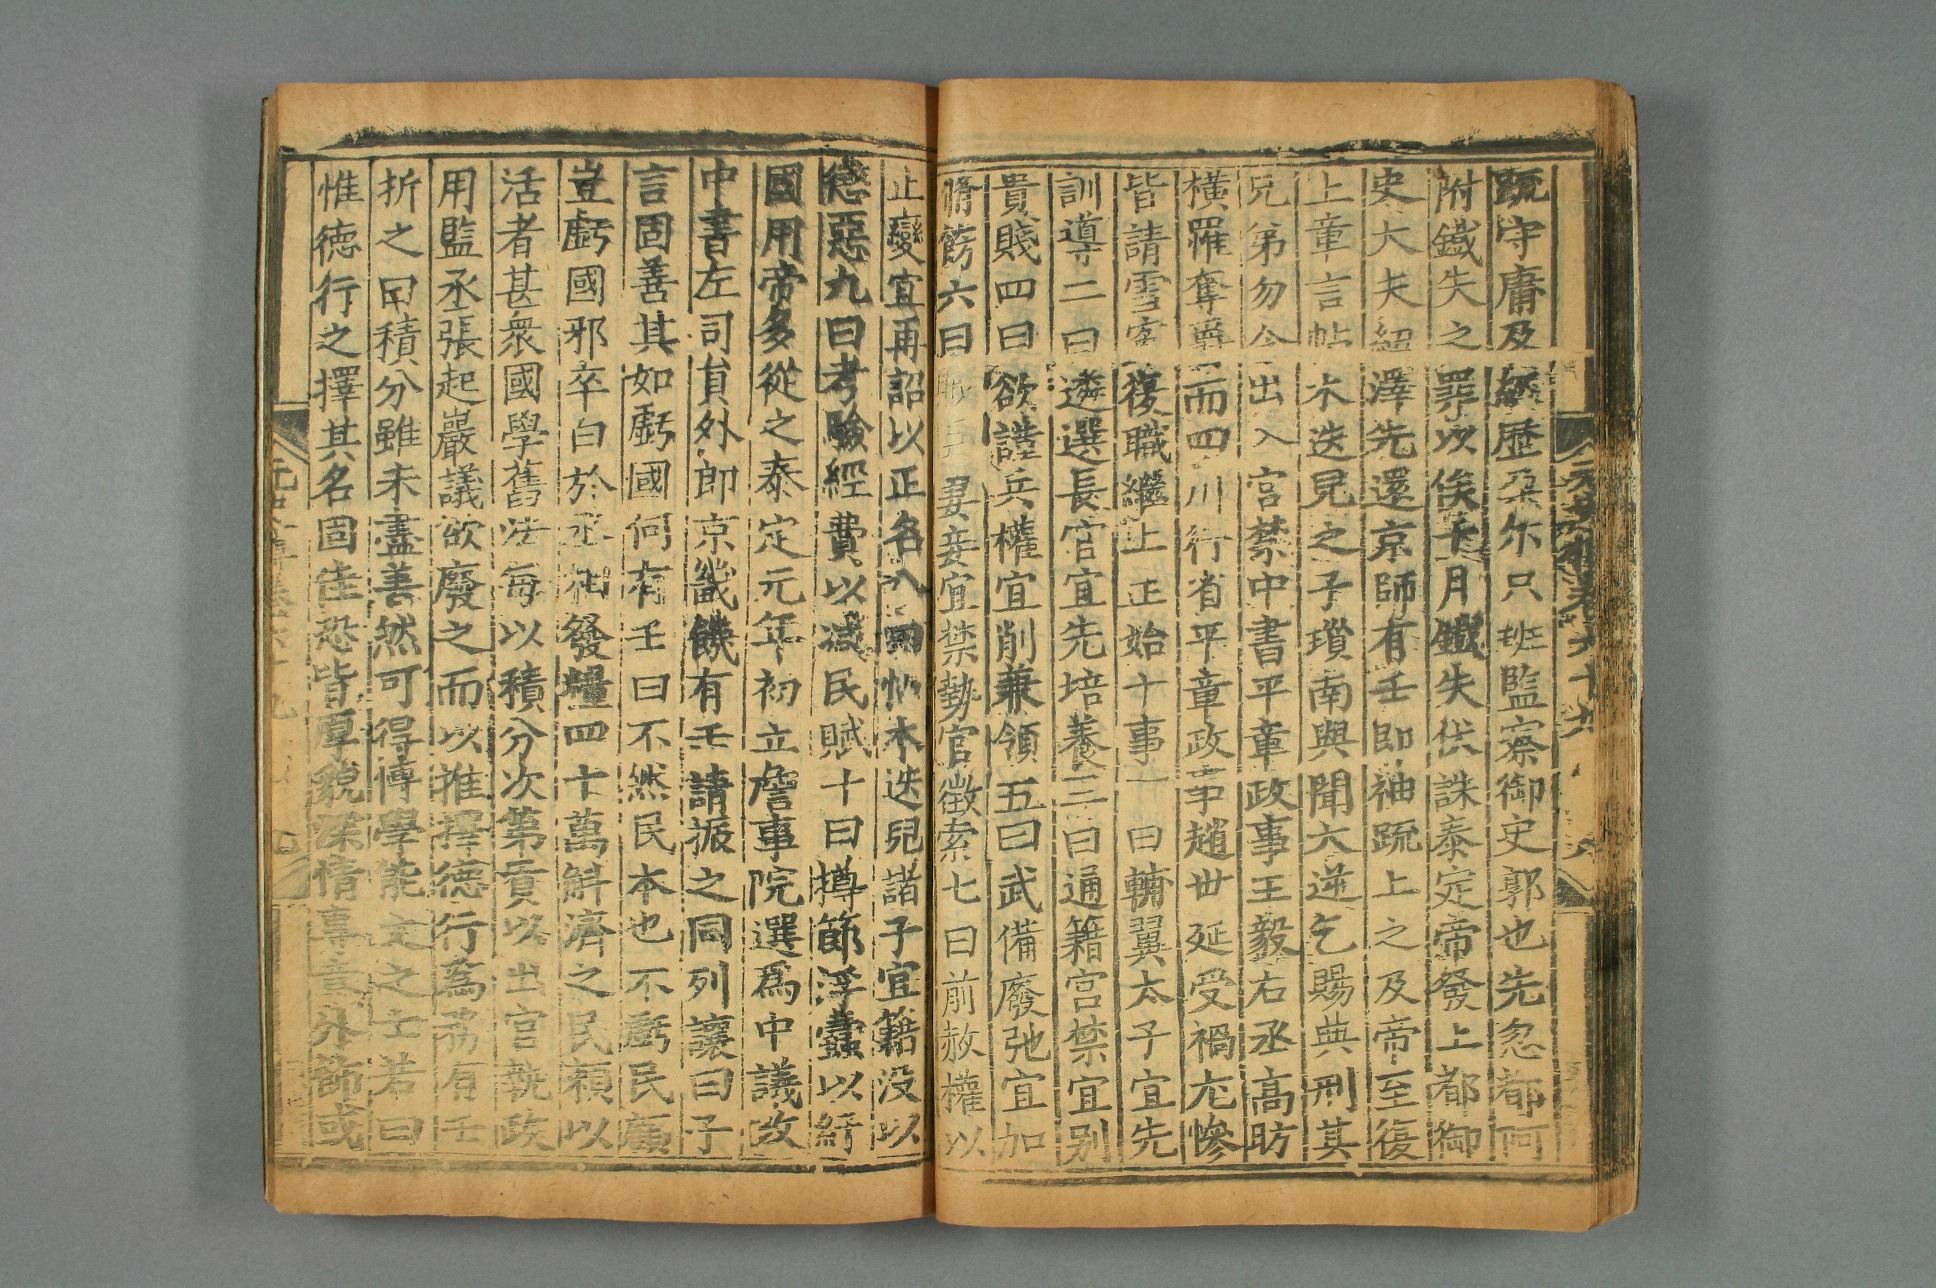 疏守庸及經歷朶尔只班監察御史郭也先忽都阿
附鐵失之罪以俟十月鐵失伏誅泰定帝發上都御
史大夫紐澤先還京師有壬即袖疏上之及帝至復
上章言帖木迭兒之子瑣南與聞大逆乞賜典刑其
兄弟勿令出入宮禁中書平章政事王毅右丞高昉
橫罹奪爵而四川行省平章政事趙世延受禍尤慘
皆請雪寃復職繼上正始十事一曰輔翼太子宜先
訓導二曰遴選長官宜先培養三曰通籍宮禁宜别
貴賤四曰欲謹兵權宜削兼領五曰武備廢弛宜加
脩飭六曰妻妾宜禁勢官徵索七曰前赦權以
止變宜再詔以正名八曰帖木迭兒諸子宜籍没以
懲惡九曰考驗經費以减民賦十曰撙節浮蠹以紓
國用帝多從之泰定元年初立詹事院選爲中議改
中書左司員外郎京畿饑有壬請振之同列讓曰子
言固善其如虧國何有壬曰不然民本也不虧民顧
豈虧國邪卒白於丞相發糧四十萬斛濟之民賴以
活者甚衆國學舊法每以積分次第貢以出官執政
用監丞張起巖議欲廢之而以推擇德行爲務有壬
折之曰積分雖未盡善然可得博學能文之士若曰
惟德行之擇其名固佳恐皆厚貌深情專意外飾或